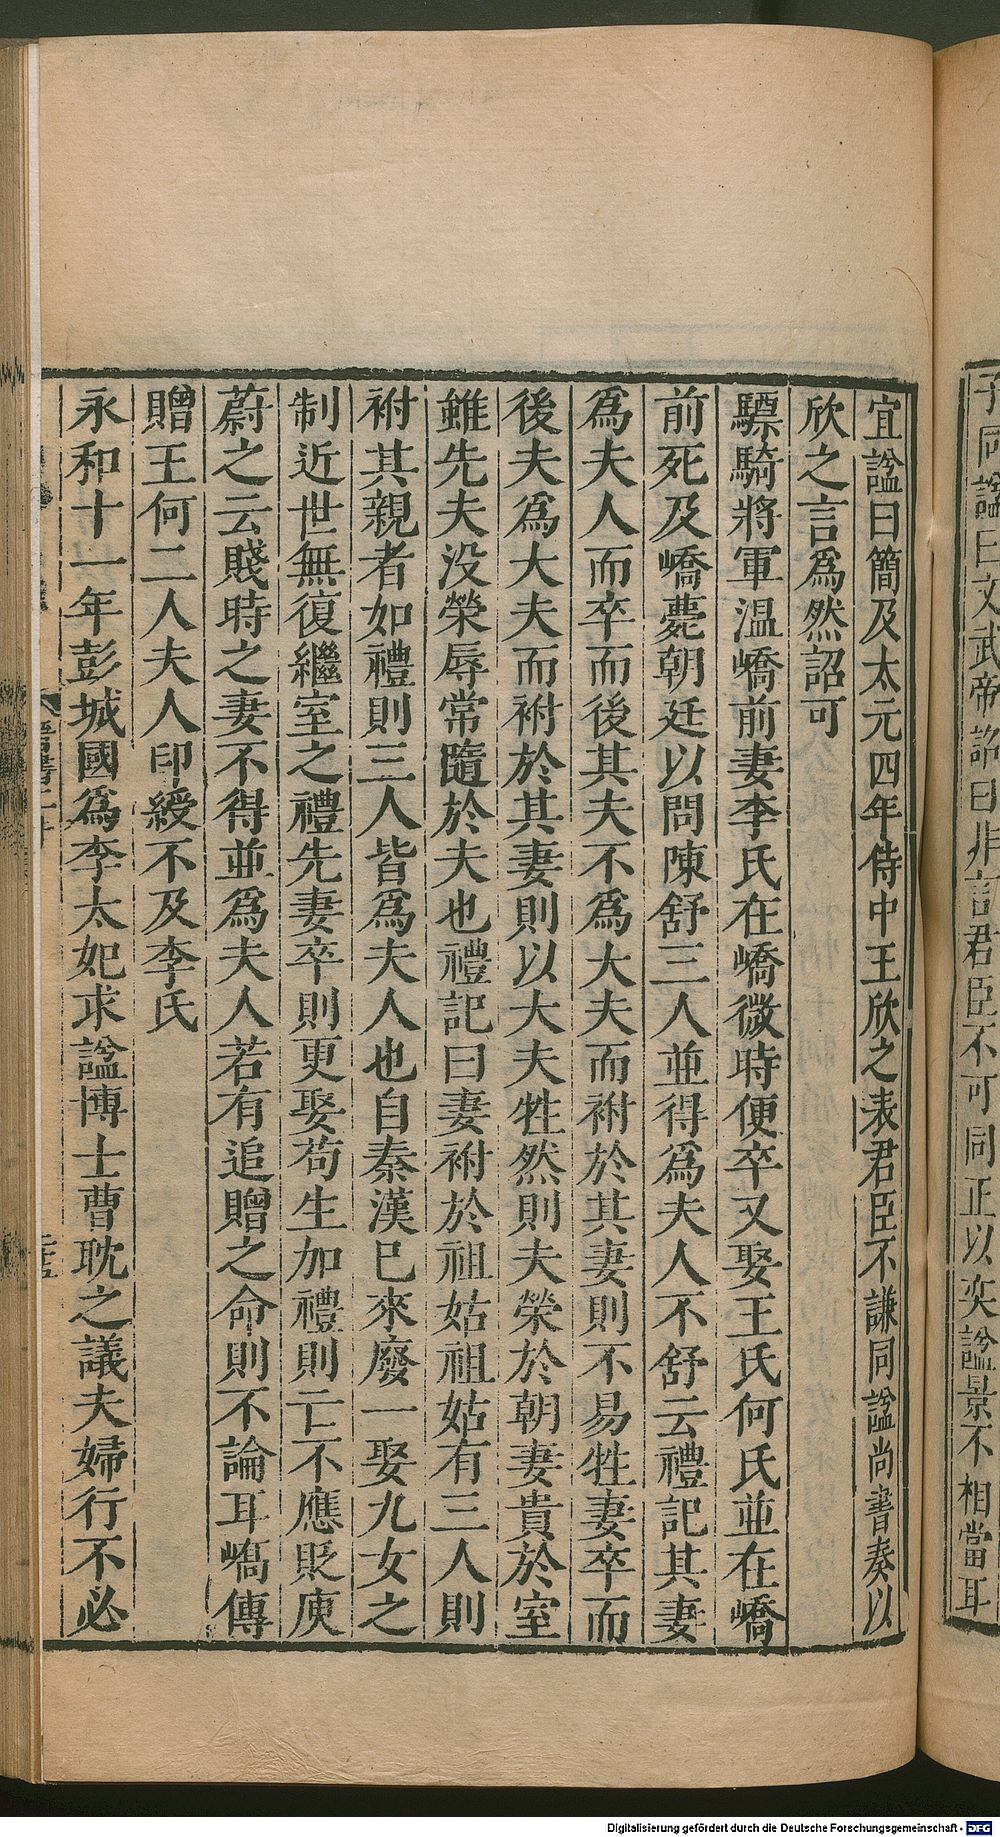 子同諡曰文武帝詔曰非言君臣不可同正以奕諡景不相當耳
宜諡曰簡及太元四年侍中王欣之表君臣不謙同諡尚書奏以
欣之言為然詔可
驃騎將軍溫嶠前妻李氏在嶠微時便卒又娶王氏何氏並在嶠
前死及嶠薨朝廷以問陳舒三人並得為夫人不舒云禮記其妻
為夫人而卒而後其夫不為大夫而祔於其妻則不易牲妻卒而
後夫為大夫而祔於其妻則以大夫牲然則夫榮於朝妻貴於室
雖先夫没榮辱常隨於夫也禮記曰妻祔於祖姑祖姑有三人則
祔其親者如禮則三人皆為夫人也自秦漢已來廢一娶九女之
制近世無復繼室之禮先妻卒則更娶苟生加禮則亡不應貶庾
蔚之云賤時之妻不得並為夫人若有追贈之命則不論耳嶠傳
贈王何二人夫人印綬不及李氏
永和十一年彭城國為李太妃求諡博士曹耽之議夫婦行不必
晉書二十
Digitalisierung gefördert durch die Deutsche Forschungsgemeinschaft - DFG